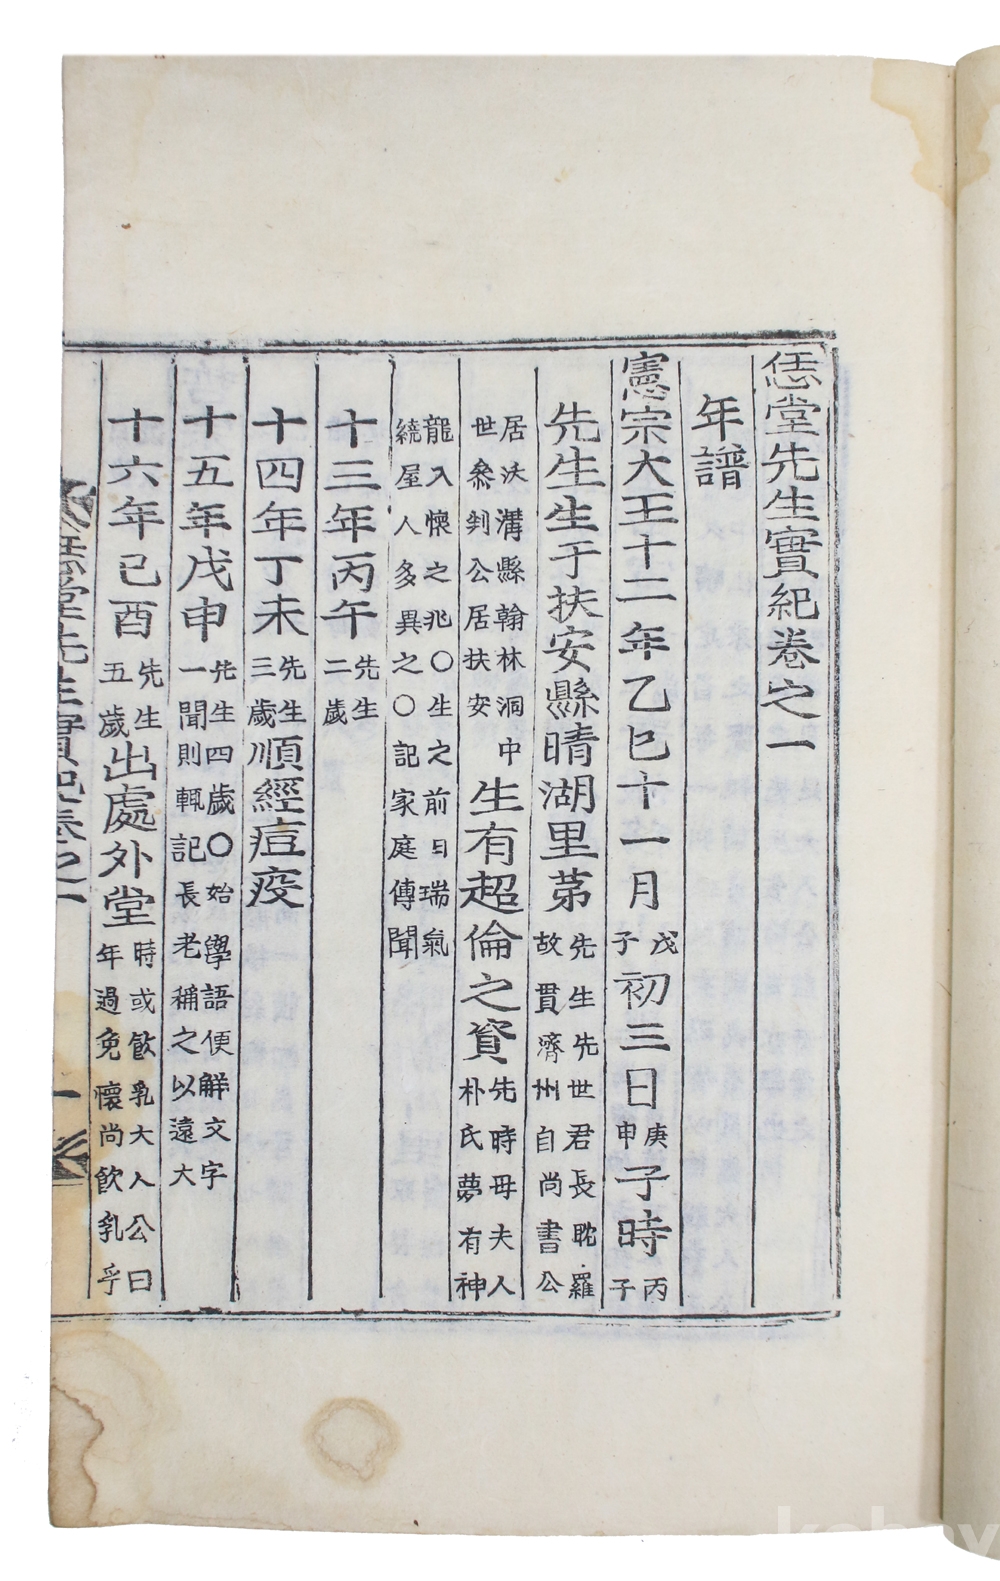 恁堂先生實紀卷之一
年譜
憲宗大王十二年乙巳十一月戊子初三日庚申子時丙子
先生生于扶安縣晴湖里茅先生先世君長耽羅故貫濟州自尚書公
居沃溝縣翰林洞中世參判公居扶安生有超倫之資先時母夫人朴氏夢有神
龍入懷之兆〇生之前日瑞氣繞屋人多異之〇記家庭傳聞
十三年丙午先生二歲
十四年丁未先生三歲順經痘疫
十五年戊申先生四歲〇始學語便解文字一聞則輒記長老稱之以遠大
十六年己酉先生五歲出處外堂時或飮乳大人公曰年過免懷尚飮乳乎
恁堂先生實紀卷之一
一